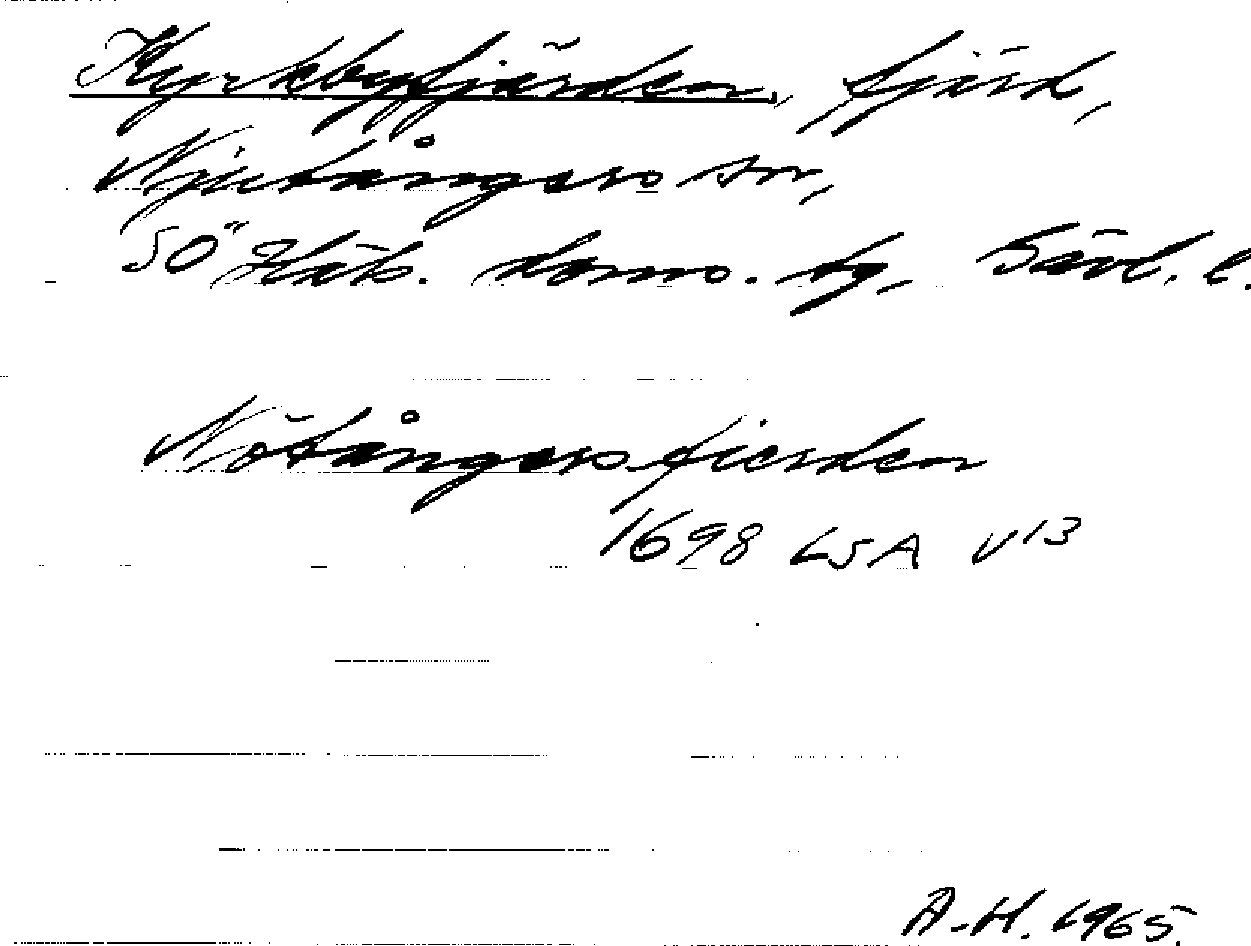 Kyrkbyfjärden, fjärd,
Njutångers sn,
SÖ Häls. doms. tg, Gävl. l.
Nötångers fierden
1698 LSA V13
A.H. 1965.